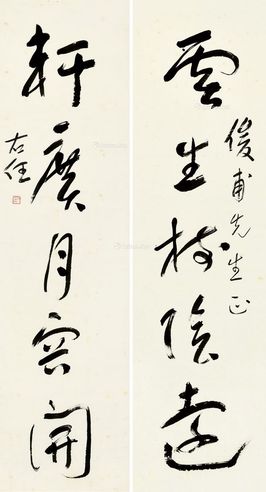 雲生樹陰遠
俊甫先生正
軒廣月容開
右任